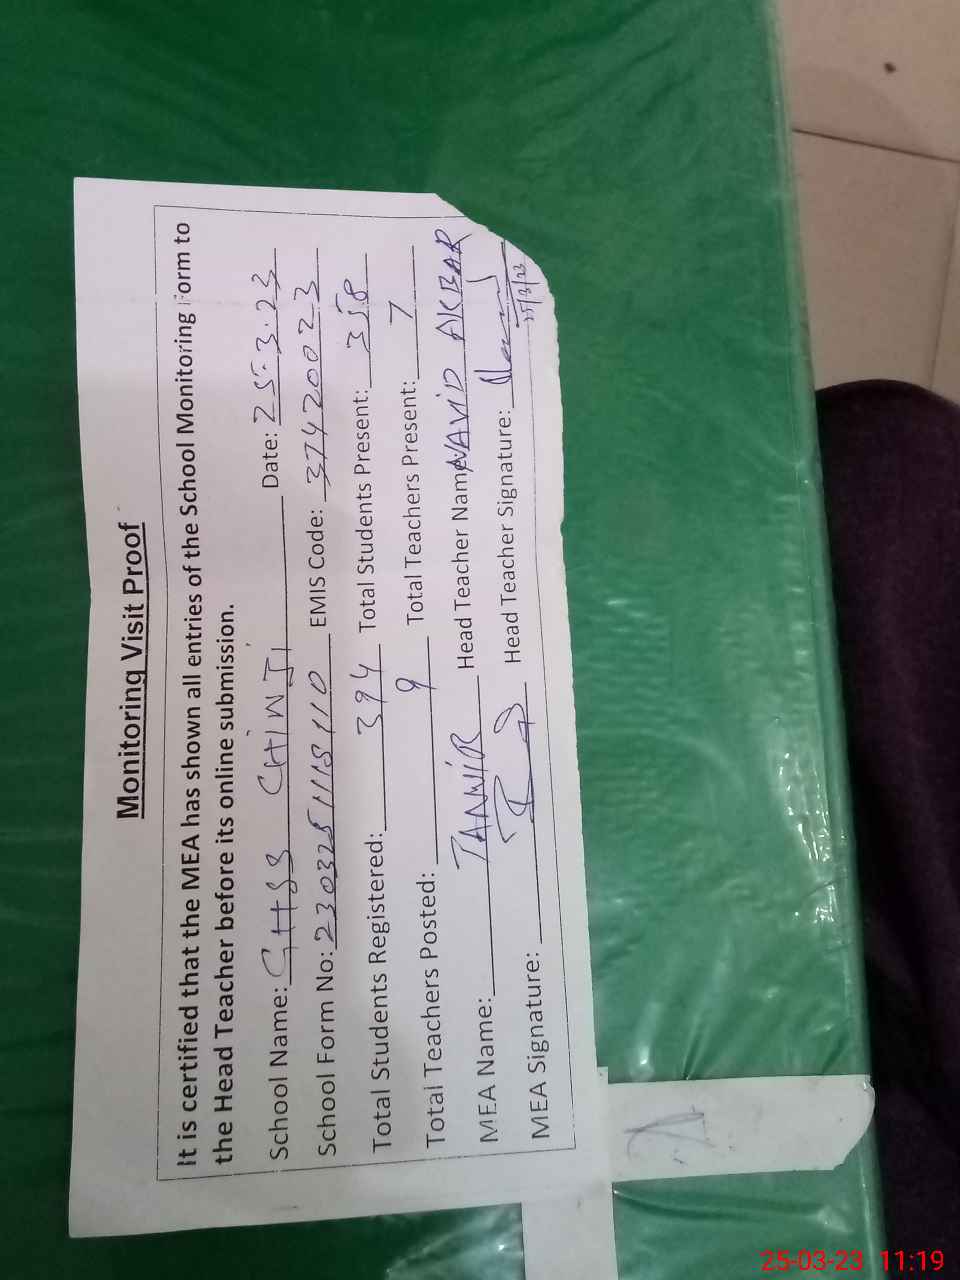 Monitoring Visit Proof
It is certified that the MEA has shown all entries of the School Monitoring Form to
the Head Teacher before its online submission.
School Name: GHSS CHINJI Date: 25.3.23
School Form No: EMIS Code: 37420023
Total Students Registered: 394 Total Students Present: 358
Total Teachers Posted: 9 Total Teachers Present: 7
MEA Name: TANVIR Head Teacher Name: NAVID AKBAR
MEA Signature: Head Teacher Signature:
25/3/23
25-03-23 11:19